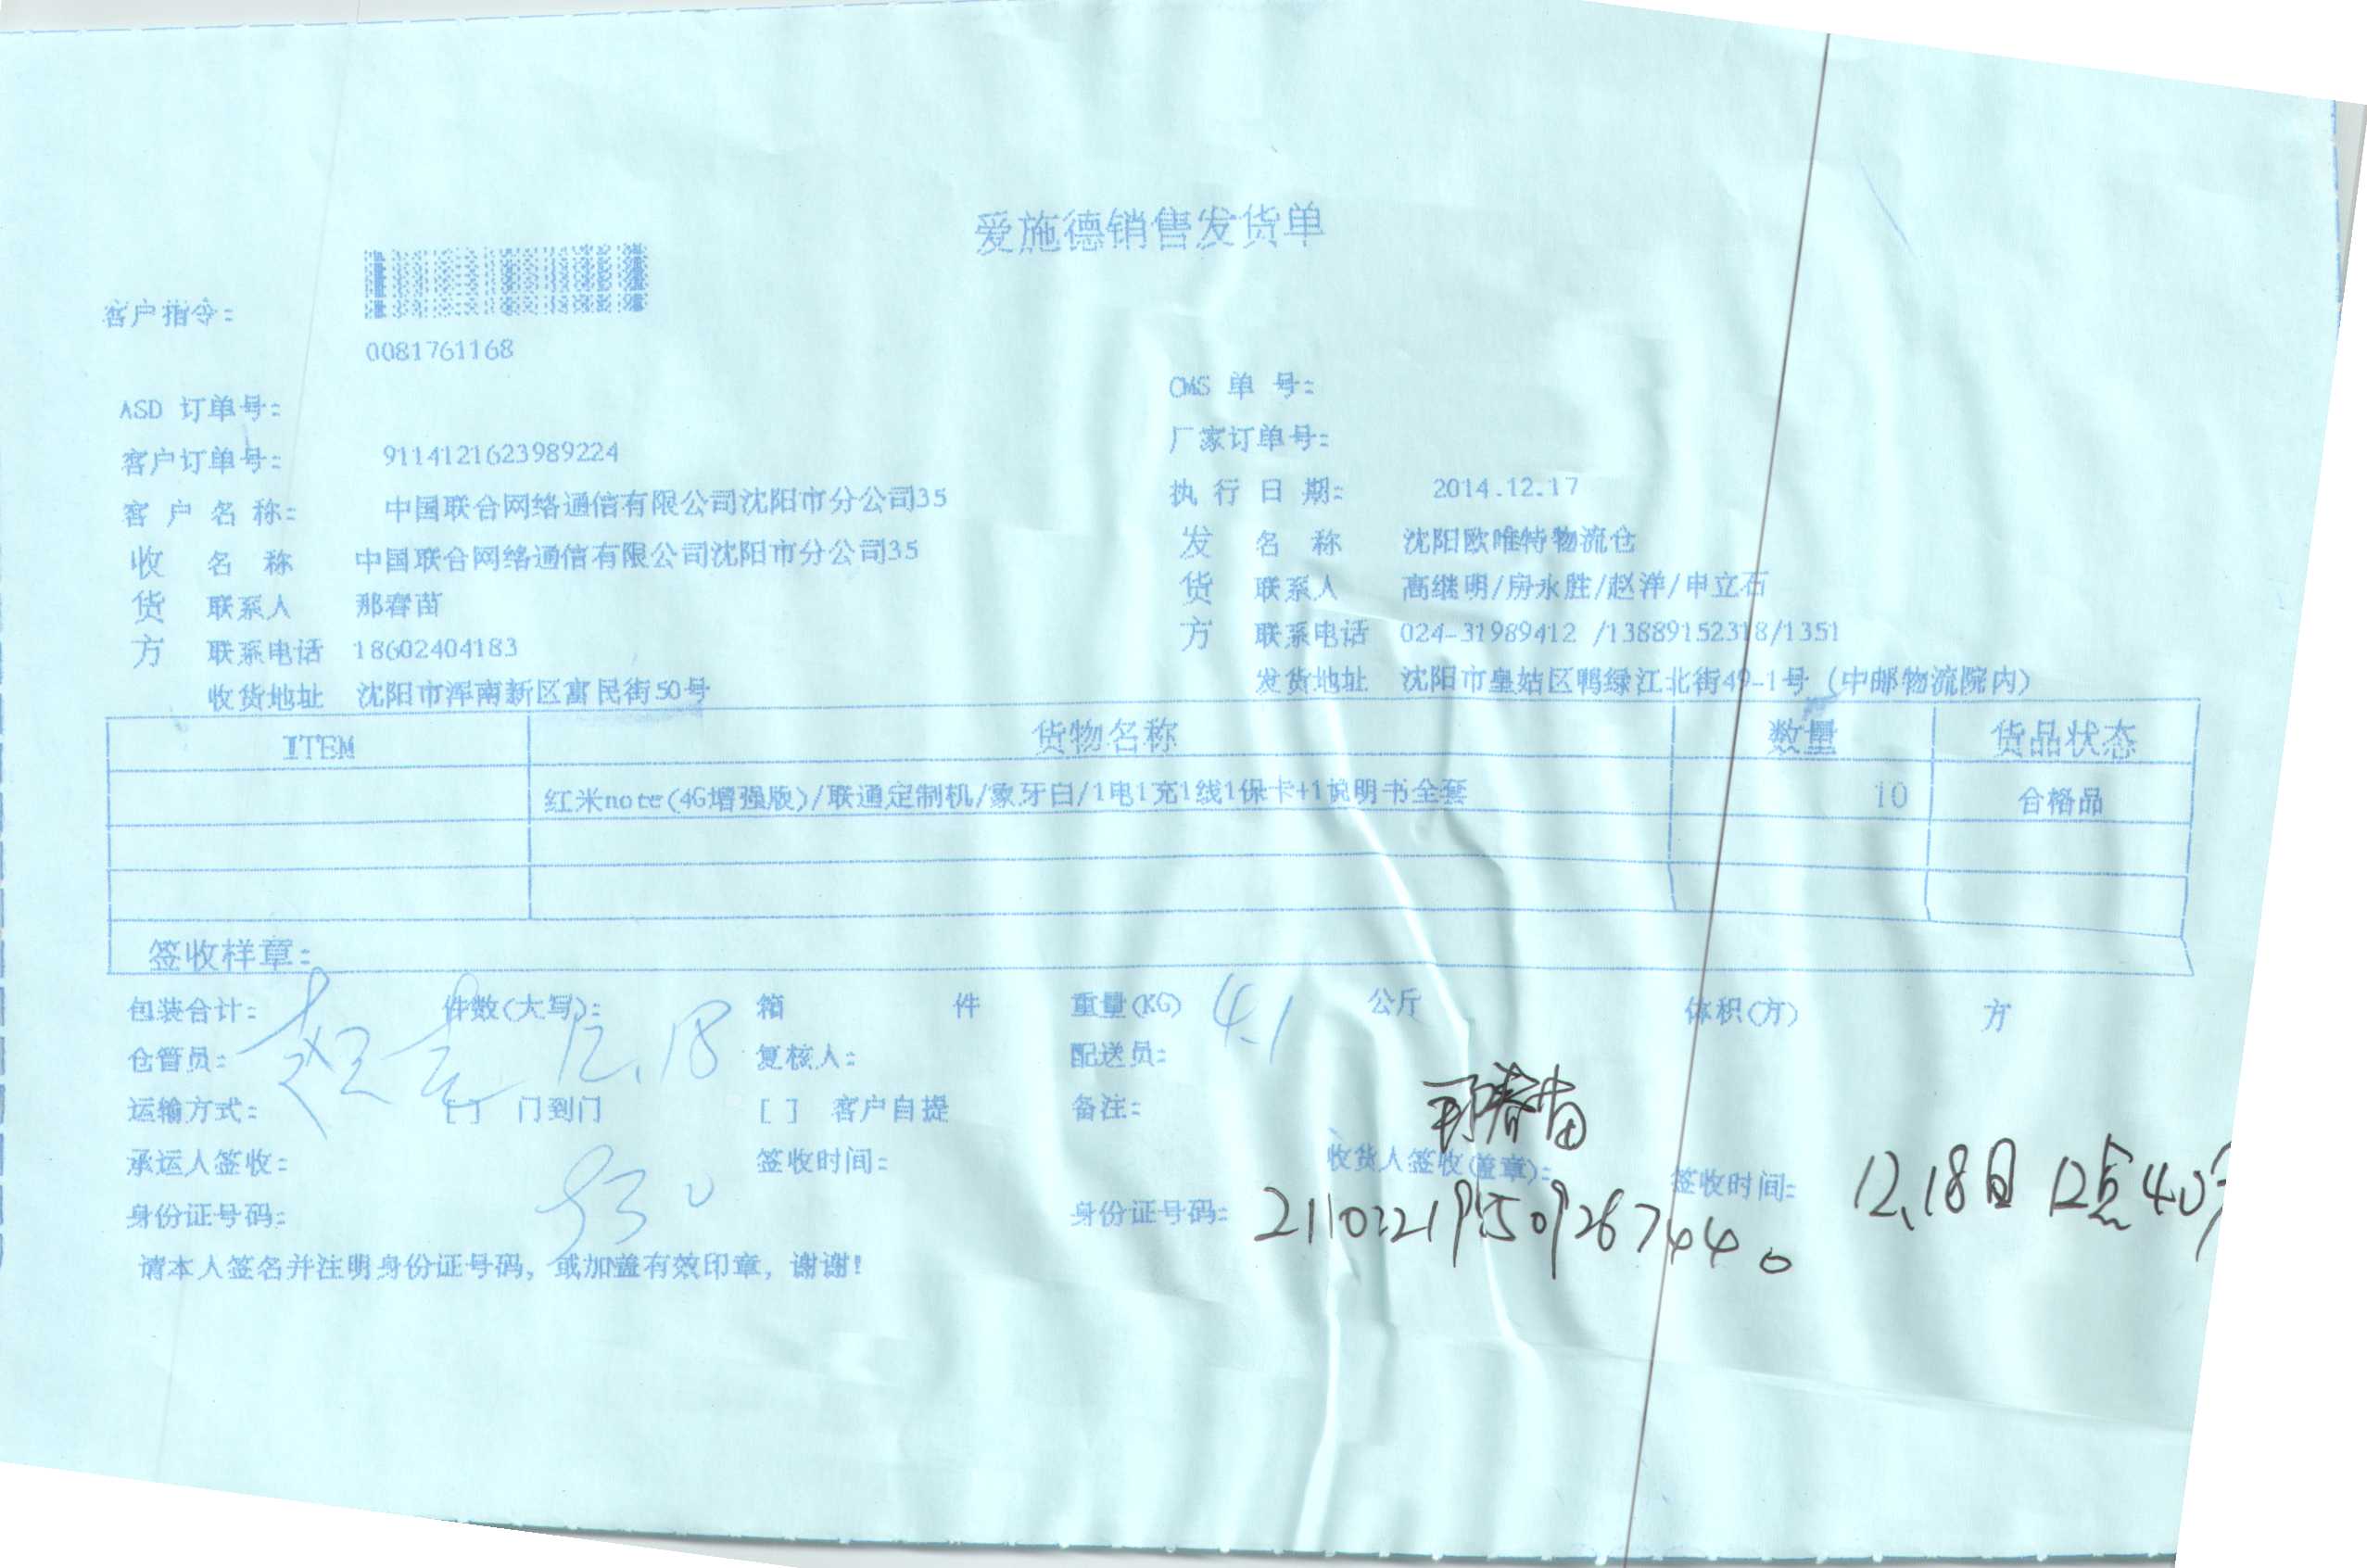 爱施德销售发货单
客户指令:
0081761168
ASD 订单号: CMS 单 号:
客户订单号: 9114121623989224 厂家订单号:
客 户 名 称: 中国联合网络通信有限公司沈阳市分公司35 执 行 日 期: 2014.12.17
收 名 称 中国联合网络通信有限公司沈阳市分公司35 发 名 称 沈阳欧唯特物流仓
货 联系人 那春苗 货 联系人 高继明/房永胜/赵洋/申立石
方 联系电话 18602404183 方 联系电话 024-31989412 /13889152318/1351
收货地址 沈阳市浑南新区富民街50号 发货地址 沈阳市皇姑区鸭绿江北街49-1号 (中邮物流院内)
ITEM 货物名称 数量 货品状态
红米note(4G增强版)/联通定制机/象牙白/1电1充1线1保卡+1说明书全套 10 合格品
签收样章:
包装合计: 件数(大写): 箱 件 重量(KG) 4.1 公斤 体积(方) 方
仓管员: 12.18 复核人: 配送员:
运输方式: [ ] 门到门 [ ] 客户自提 备注: 那春苗
承运人签收: 签收时间: 收货人签收(盖章): 签收时间: 12.18日 12点40
身份证号码: 930 身份证号码:
请本人签名并注明身份证号码, 或加盖有效印章, 谢谢!